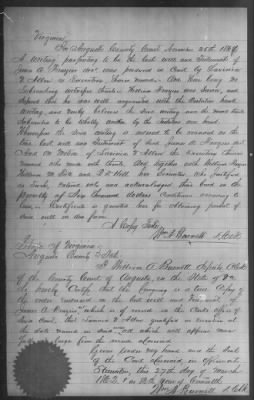 Virginia,
In Augusta County Court November 25th 18
A writing purporting to be the last will and testament of
James A. Frazier decd. was produced in Court by Lavinia
J. Allen an Executrix therein named. And there being no
Subscribing witnesses thereto William Frazier was sworn, and
deposed that he was well acquainted with the Testators hand
writing and verily believes the said writing and the name there
Subscribed to be wholly written by the testators own hand.
Whereupon the said writing is ordered to be recorded as the
true last will and testament of said James A. Frazier decd.
And on motion of Lavinia J. Allen the Executrix therein
named who made oath thereto and together with William Frazier
William M. and her Securities, who justified
as Such, entered into and acknowledged their bond in the
penalty of Ten thousand dollars conditioned according to
law, Certificate is granted her for obtaining probate of
said will in due form.
A Copy Teste
Wm A. Burnett D. Clk.
State of Virginia
Augusta County to wit.
I William A. Burnett Deputy Clerk
of the County Court of Augusta in the State of Va
do hereby Certify that the foregoing is a true Copy of
the order endorsed on the last will and testament of
James A. Frazier which is of record in the Clerks office of
said Court, that Lavinia J. Allen qualified as executrix at
the date named in said order which will appear more
fully from the record aforesaid
Given under my hand and the Seal
of the Court aforesaid in Office at
Staunton, this 27th day of March
186 in the year of Commonwealth
Wm A. Burnett D. Clk